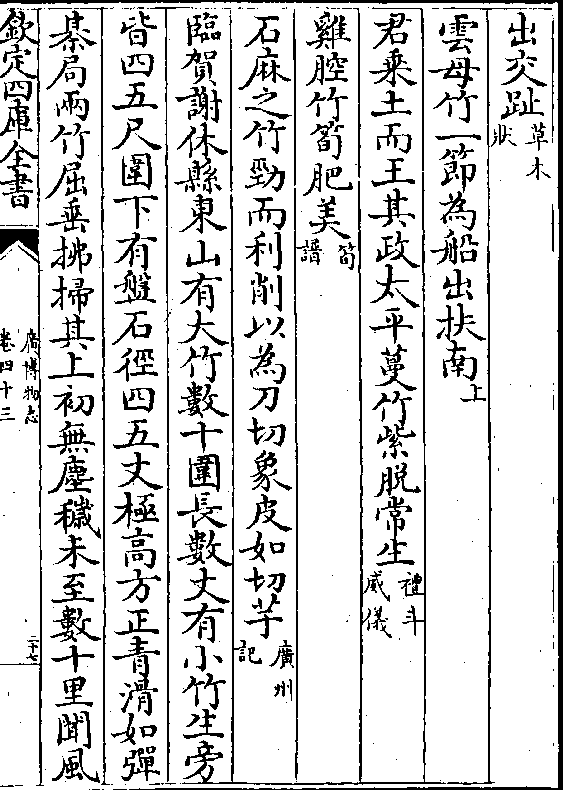 出交趾草木狀
雲母竹一節為船出扶南上
君乘土而王其政太平蔓竹紫脱常生禮斗威儀
雞腔竹筍肥美筍譜
石麻之竹勁而利削以為刀切象皮如切芋廣州記
臨賀謝休縣東山有大竹數十圍長數丈有小竹生旁
皆四五尺圍下有盤石徑四五丈極高方正青滑如彈
棊局兩竹屈垂拂掃其上初無塵穢未至數十里聞風
欽定四庫全書
廣博物志
卷四十三
三十七